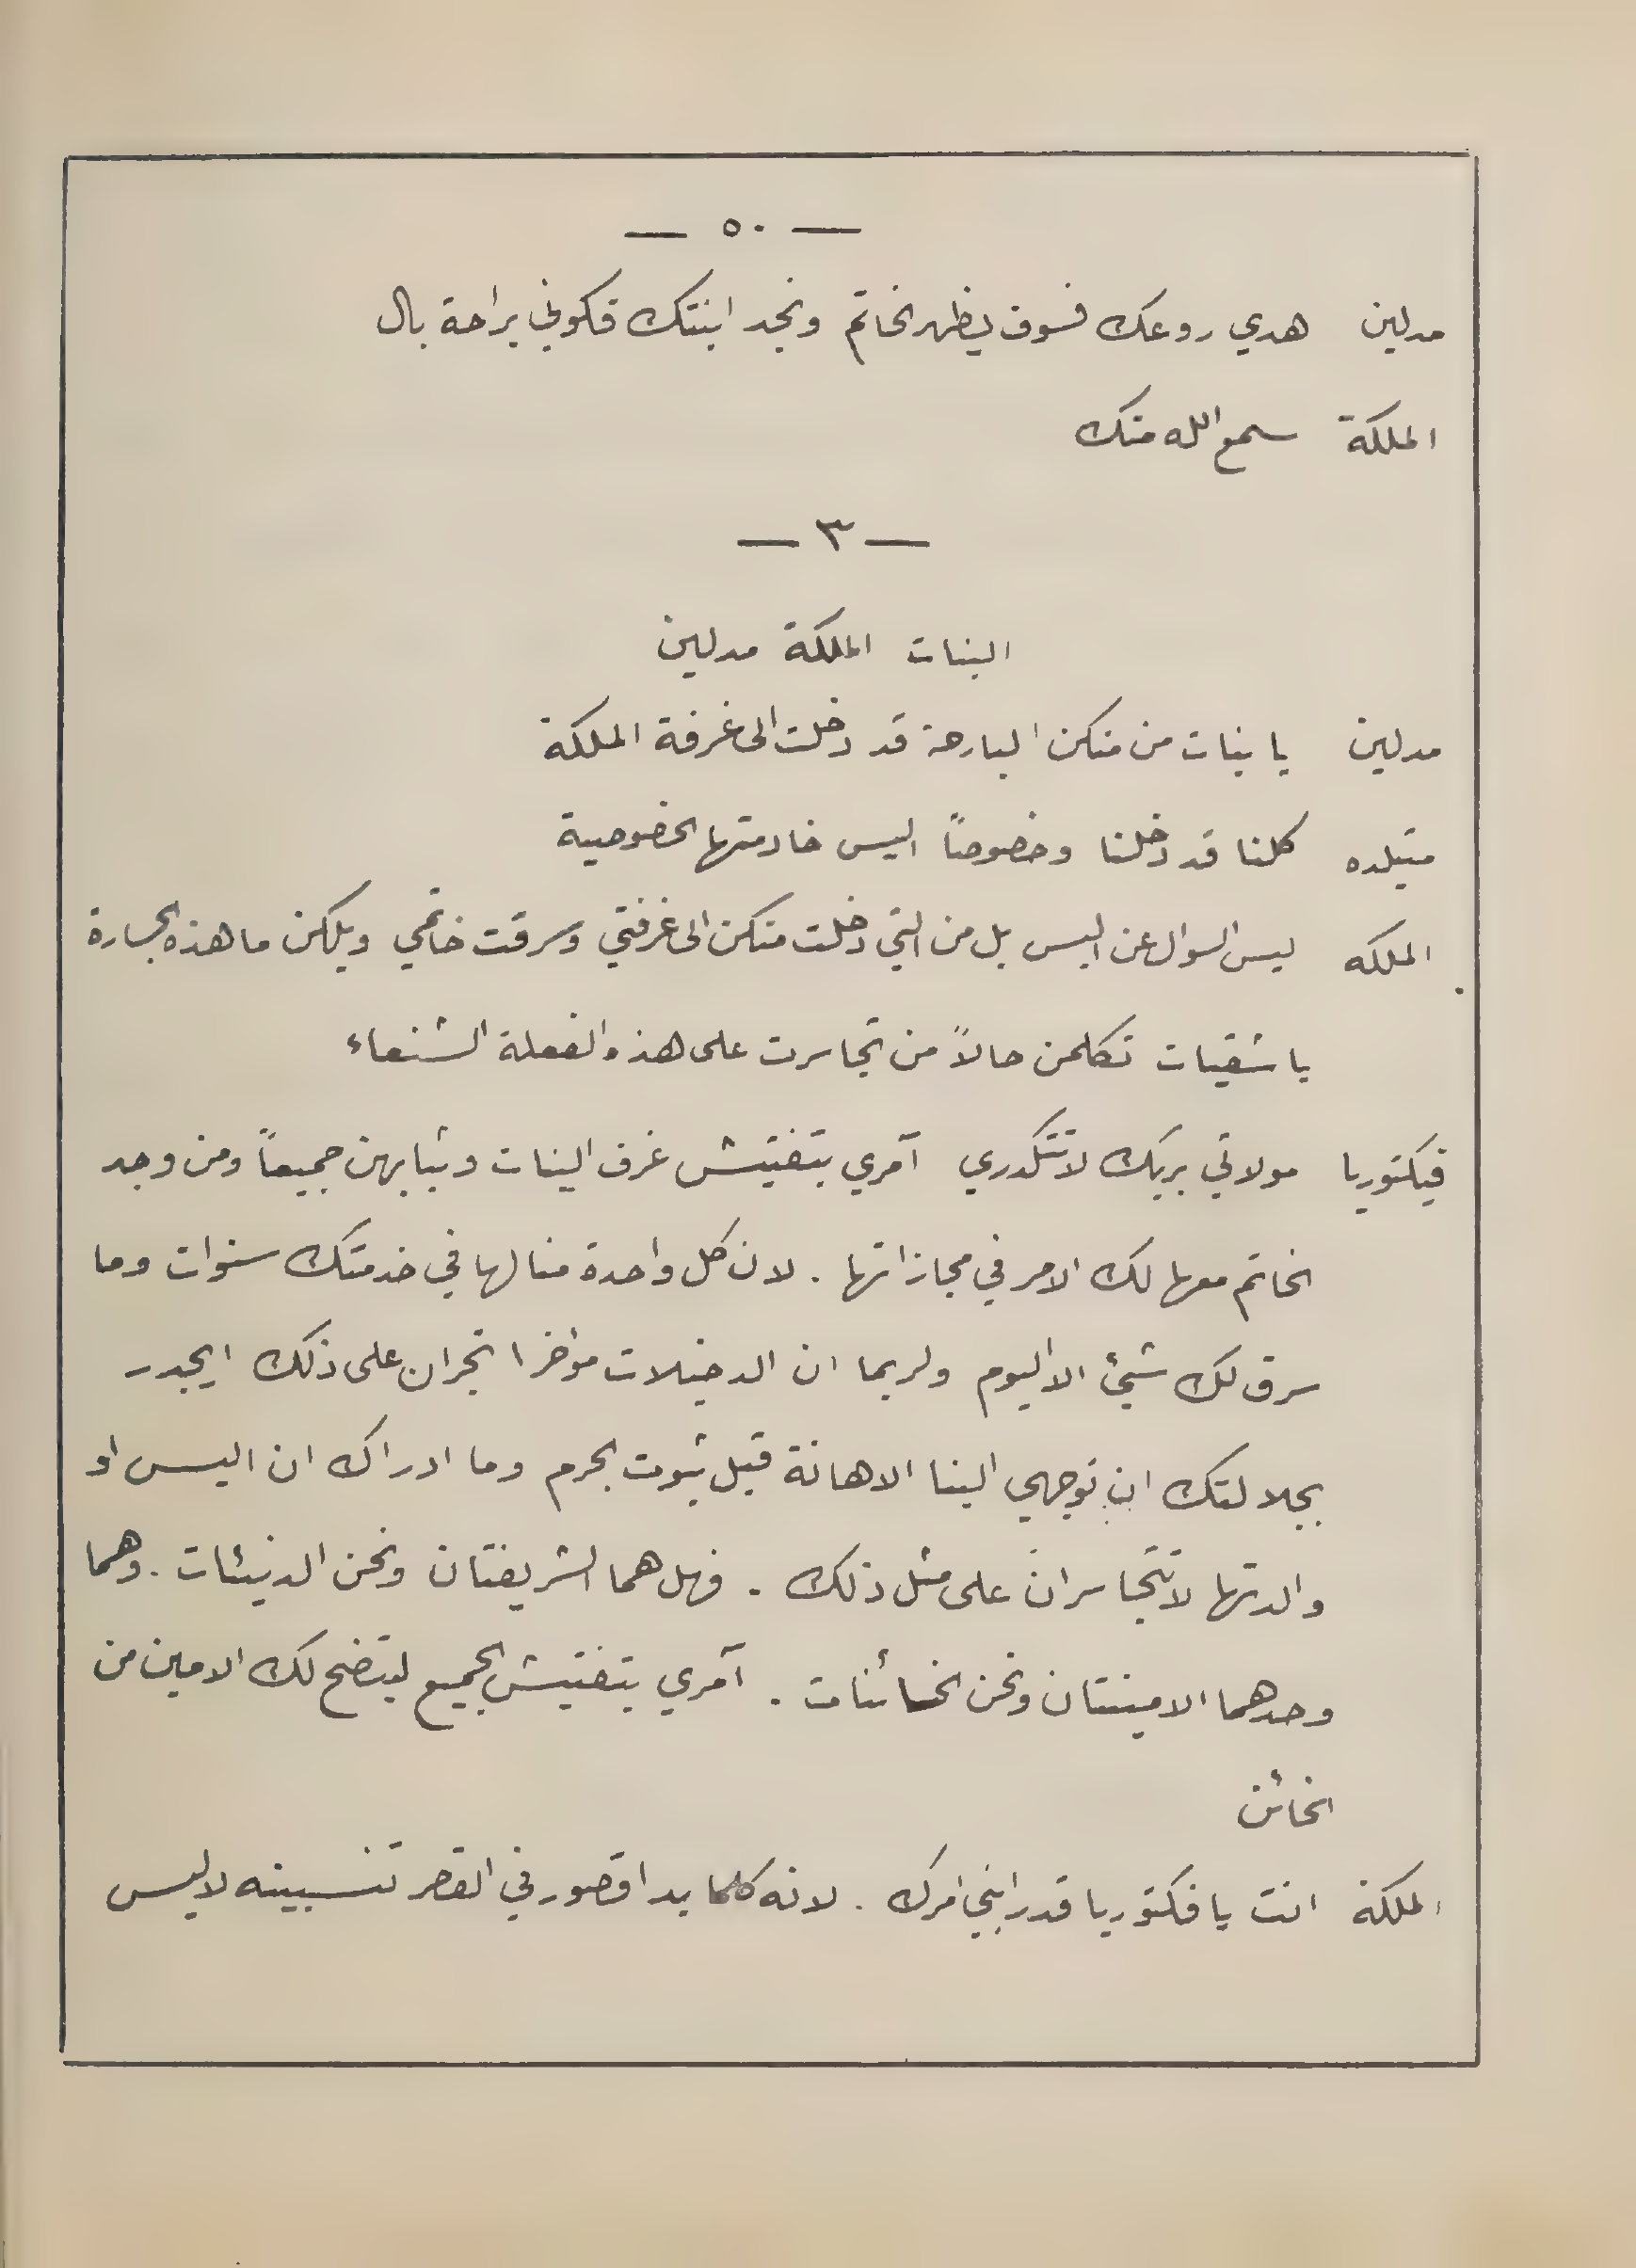 — ٥٠ —
مدلين هدي روعك فسوف يظهر الخاتم ونجد ابنتك فكوني براحة بال
الملكة سمع الله منك
— ٣ —
البنات الملكة مدلين
مدلين يا بنات من منكن البارحة قد دخلت الى غرفة الملكة
متيلده كلنا قد دخلنا وخصوصاً اليس خادمتها الخصوصية
الملكه ليس السوال عن اليس بل من التي دخلت منكن الى غرفتي وسرقت خاتمي ويلكن ما هذه الجسارة
يا شقيات تكلمن حالاً من تجاسرت على هذه الفعلة الشنعاء
فيكتوريا مولاتي بربك لا تتكدري آمري بتفتيش غرف البنات وثيابهن جميعاً ومن وجد
الخاتم معها لك الامر في مجازاتها . لان كل واحدة منا لها في خدمتك سنوات وما
سرق لك شيئ الا اليوم ولربما ان الدخيلات مؤاخرا تجران على ذلك ايجدر
بجلالتك ان توجهي الينا الاهانة قبل ثبوت الجرم وما ادراك ان اليس او
والدتها لا تتجاسران على مثل ذلك . فهل هما الشريفتان ونحن الدنيئات . وهما
وحدهما الامينتان ونحن الخائنات . آمري بتفتيش الجميع ليتضح لك الامين من
الخائن
الملكة انت يا فكتوريا قد رابني امرك . لانه كلما بدا قصور في القصر تنسبينه لاليس